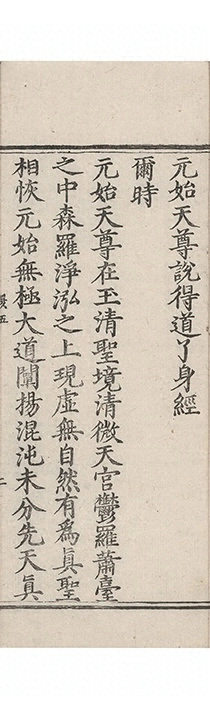 元始天尊說得道了身經
爾時
元始天尊在玉清聖境清微天宮鬱羅蕭臺
之中森羅淨泓之上現虛無自然有為真聖
相恢元始無極大道闡揚混沌未分先天真